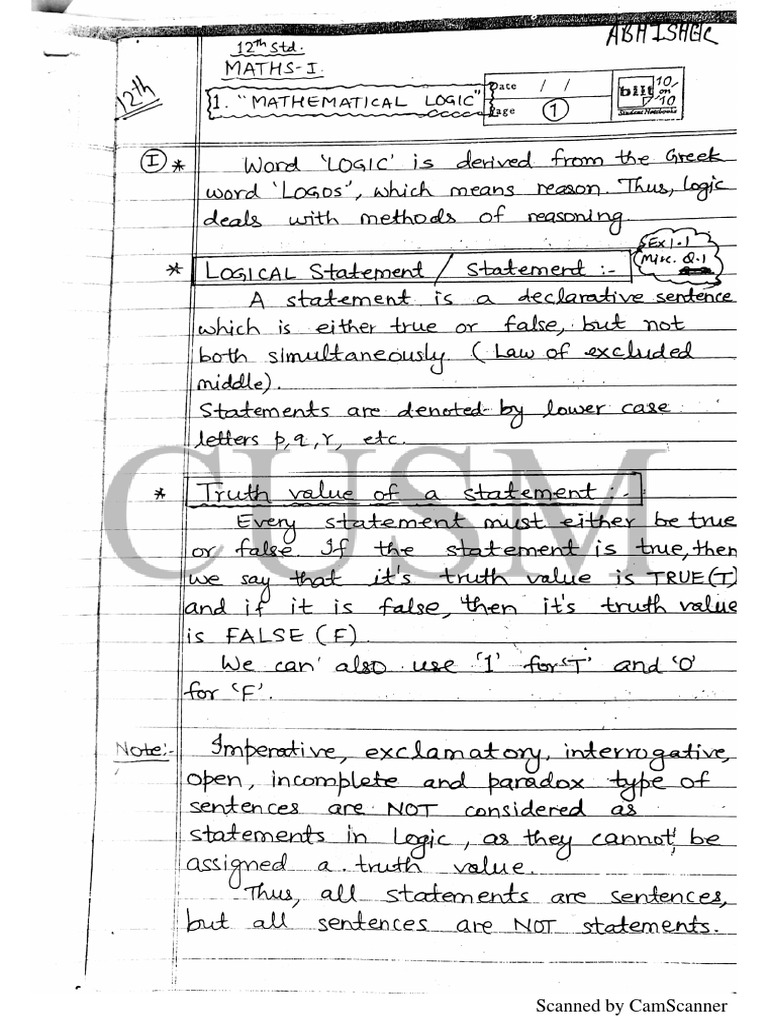 ABHISHEK
12th Std.
MATHS-I.
12th
1. "MATHEMATICAL LOGIC"
Date / /
Page 1
bilt 10 on 10
Student Notebooks
I * Word 'LOGIC' is derived from the Greek
word 'LOGOS', which means reason. Thus, logic
deals with methods of reasoning.
Ex 1.1
Misc. Q.1
* LOGICAL Statement / Statement :-
A statement is a declarative sentence
which is either true or false, but not
both simultaneously. (Law of excluded
middle).
Statements are denoted by lower case
letters p, q, r, etc.
CUSM
* Truth value of a statement :-
Every statement must either be true
or false. If the statement is true, then
we say that it's truth value is TRUE(T)
and if it is false, then it's truth value
is FALSE (F).
We can also use '1' for 'T' and '0'
for 'F'.
Note:- Imperative, exclamatory, interrogative,
open, incomplete and paradox type of
sentences are NOT considered as
statements in logic, as they cannot be
assigned a truth value.
Thus, all statements are sentences,
but all sentences are NOT statements.
Scanned by CamScanner